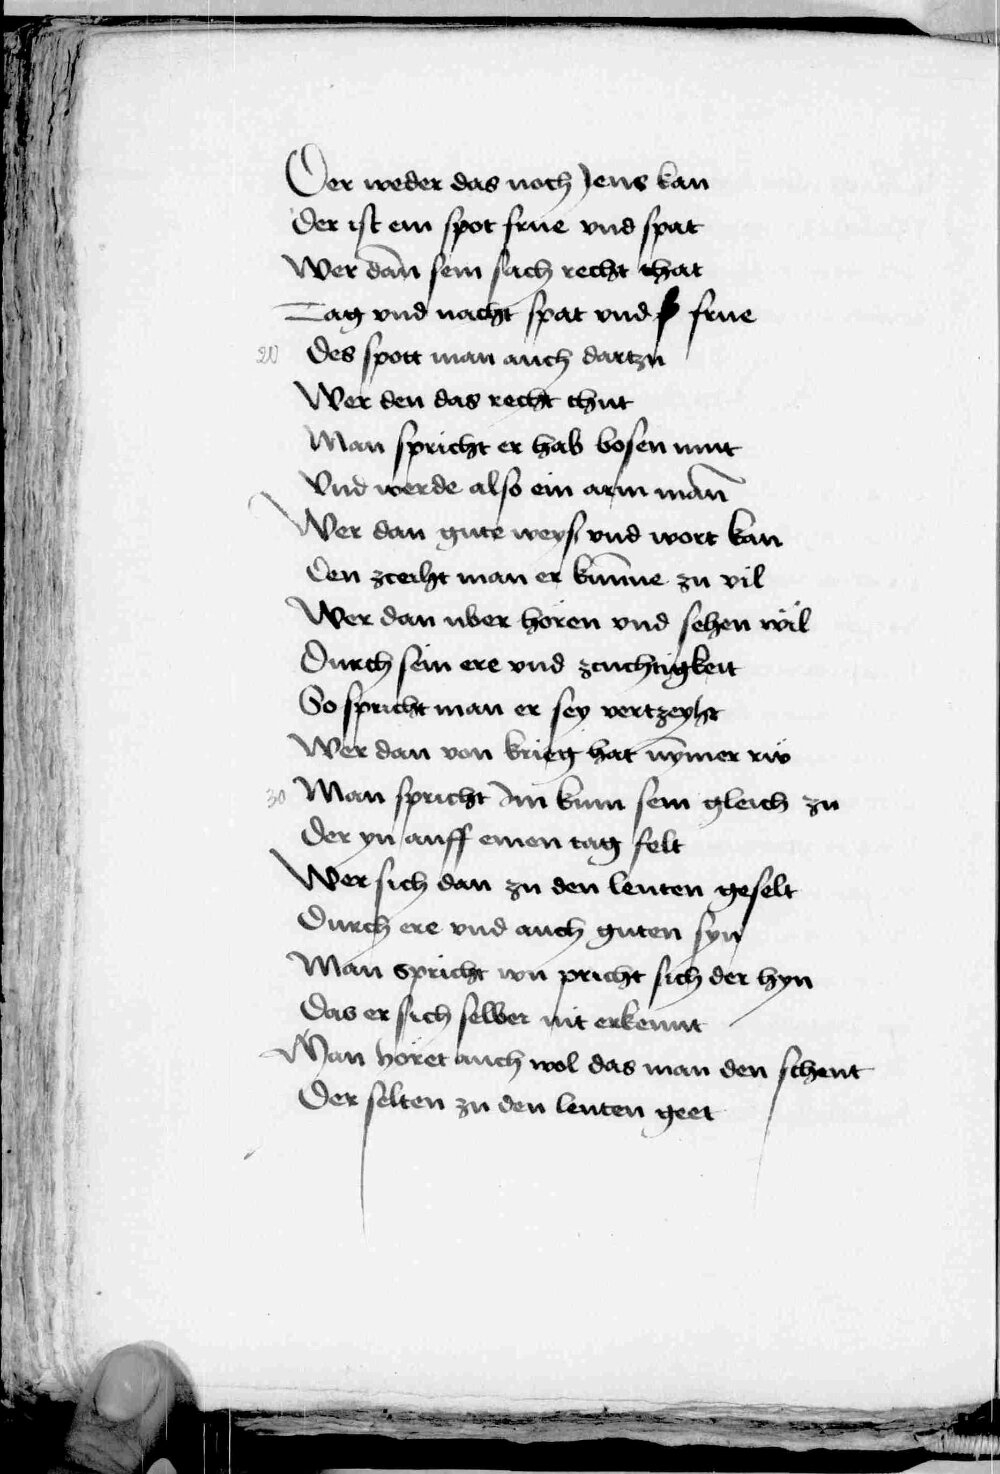 Der weder das noch Jens kan
Der ist ein spot frue vnd spat
Wer dan̄ sein sach recht that
Tag vnd nacht spat vnd frue
20 Des spott man auch dartzu
Wer den das recht thut
Man spricht er hab bosen mut
Vnd werde also ein arm man̄
Wer dan gute weys vnd wort kan
Den zceiht man er kun̄ne zu vil
Wer dan uber hören vnd sehen wil
Durch sein ere vnd zcuchtigkeit
So spricht man er sey vertzeyht
Wer dan von krieg hat nȳmer rw
30 Man spricht Im kum sein gleich zu
Der yn auff einen tag felt
Wer sich dan zu den leuten geselt
Durch ere vnd auch guten syn
Man spricht wu pricht sich der hyn
Das er sich selber nit erkennt
Man höret auch wol das man den schent
Der selten zu den leuten geet